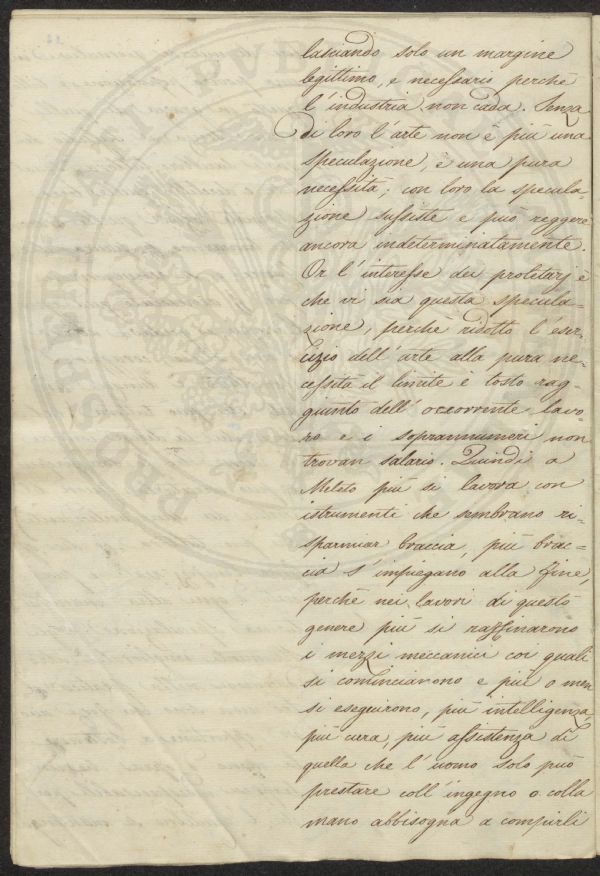 lasciando solo un margine
legittimo, e necessario perchè
l'industria non cada. Senza
di loro l'arte non è più una
speculazione, è una pura
necessità; con loro la specula=
zione sussiste e può reggere
ancora indeterminatamente.
Or l'interesse dei proletarj è
che vi sia questa specula=
zione, perchè ridotto l'eser=
cizio dell'arte alla pura ne=
cessità il limite è tosto rag=
giunto dell'occorrente lavo=
ro e i soprannumeri non
trovan salario. Quindi a
Meleto più si lavora con
istrumenti che sembrano ri=
sparmiar braccia, più brac=
cia s'impiegano alla fine,
perchè nei lavori di questo
genere più si raffinarono
i mezzi meccanici coi quali
si cominciarono e più o men
si eseguirono, più intelligenza,
più cura, più assistenza di
quella che l'uomo solo può
prestare coll'ingegno o colla
mano abbisogna a compirli